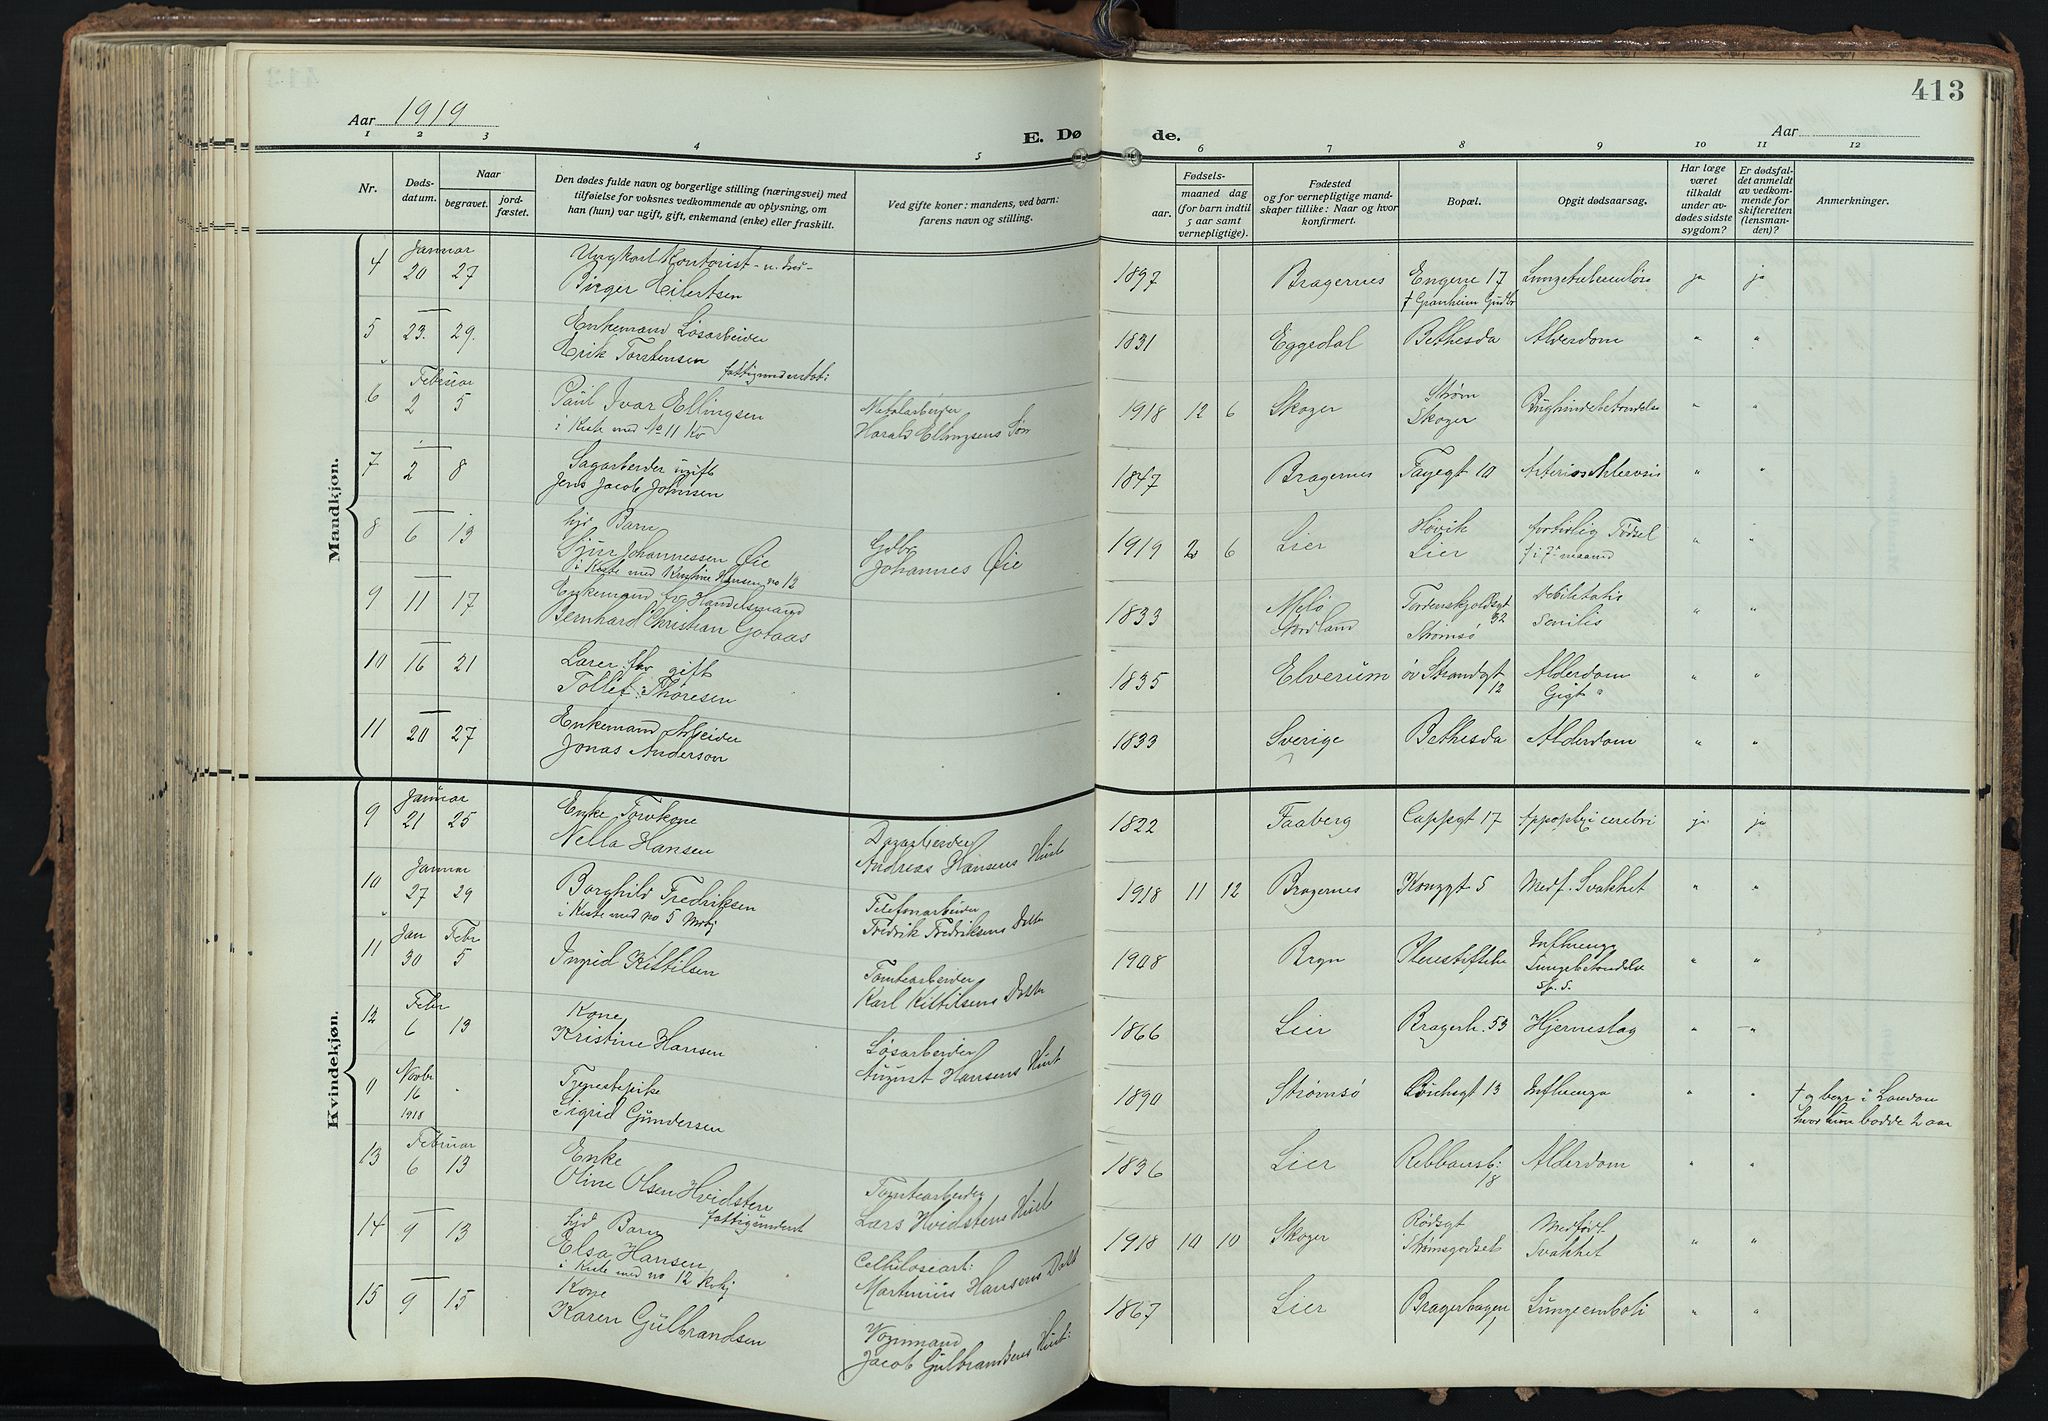 413
Aar 1919
E. Dø
de.
Aar
1 2 3 4 5 6 7 8 9 10 11 12
Nr.
Døds-
datum.
Naar
begravet.
jord-
fæstet.
Den dødes fulde navn og borgerlige stilling (næringsvei) med
tilføielse for voksnes vedkommende av oplysning, om
han (hun) var ugift, gift, enkemand (enke) eller fraskilt.
Ved gifte koner: mandens, ved barn:
farens navn og stilling.
Fødsels-
aar.
maaned dag
(for barn indtil
5 aar samt
vernepligtige).
Fødested
og for vernepligtige mand-
skaper tillike: Naar og hvor
konfirmert.
Bopæl.
Opgit dødsaarsag.
Har læge
været
tilkaldt
under av-
dødes sidste
sygdom?
Er dødsfal-
det anmeldt
av vedkom-
mende for
skifteretten
(lensman-
den)?
Anmerkninger.
Mandkjøn.
Januar
4 20 27 Ungkarl Kontorist
Birger Eilertsen
1897 Bragernes Engene 17 ja ja
† Granheim Gudbr
5 23. 29. Enkemand Løsarbeider
Erik Torstensen
fattigunderstøt:
1831 Eggedal Bethesda Alderdom " "
Februar
6 2 5 Paul Ivar Ellingsen
i Kiste med No 11 Kv
Harald Ellingsens Søn
1918 12 6 Skoger Strøm
Skoger " "
7 2 8 Sagarbeider ugift
Jens Jacob Johnsen
1847 Bragernes 10 " "
8 6 13 Barn
Sjur Johannessen Øie
i Kiste med Kristine Hansen no 12
Gdbr
Johannes Øie
1919 2 6 Lier Høvik
Lier fortidlig Fødsel
i 7' maaned " "
9 11 17 Enkemand fv Handelsmand
Bernhard Christian Gotaas
1833 Melø
Nordland Tordenskjoldsgt
32
Strømsø Debilitatis
Senilis " "
10 16 21 gift
Tollef Thoresen
1835 Elverum øv Strandgt
12 Alderdom
Gigt " "
11 20 27 Enkemand Arbeider
Jonas Anderson
1833 Sverige Bethesda Alderdom " "
Kvindekjøn.
Januar
9 21 25 Enke
Nella Hansen
Andreas Hansens Hust
1822 Faaberg Cappgt 17 Appoplexi cerebri ja ja
Januar
10 27 29 Borghild Fredriksen
i Kiste med no 5
Telefonarbeider
Fredrik Fredriksens Datter
1918 11 12 Bragernes Konggt 5 Medf. Svakhet " "
Jan Febr
11 30 5 Ingrid Kittilsen
Tomtearbeider
Karl Kittilsens Datter
1908 Bryn Influenza
Lungebetændelse
Febr
12 6 13 Kone
Kristine Hansen
Løsarbeider
August Hansens Hust
1866 Lier Bragerh. 53 Hjerneslag " "
Novbr
0 16 Tjenestepike
1918 Sigrid Gundersen
1890 Strømsø 13 Influenza " "
† og begr i London
hvor hun bodde 2 aar
Februar
13 6 13 Enke
Oline Olsen Hvidsten
fattigunderst
Tomtearbeider
Lars Hvidstens Hust
1836 Lier
18 Alderdom " "
14 9 13 Barn
Elsa Hansen
i Kiste med no 12 Kvkj
Celluloseart:
Martinius Hansens Datt
1918 10 10 Skoger Rødsgt
Strømsgodset Medfødt
Svakhet " "
15 9 15 Kone
Karen Gulbrandsen
Vognmand
Jacob Gulbrandsens Hust:
1867 Lier Bragerhagen
1 Lungeemboli " "